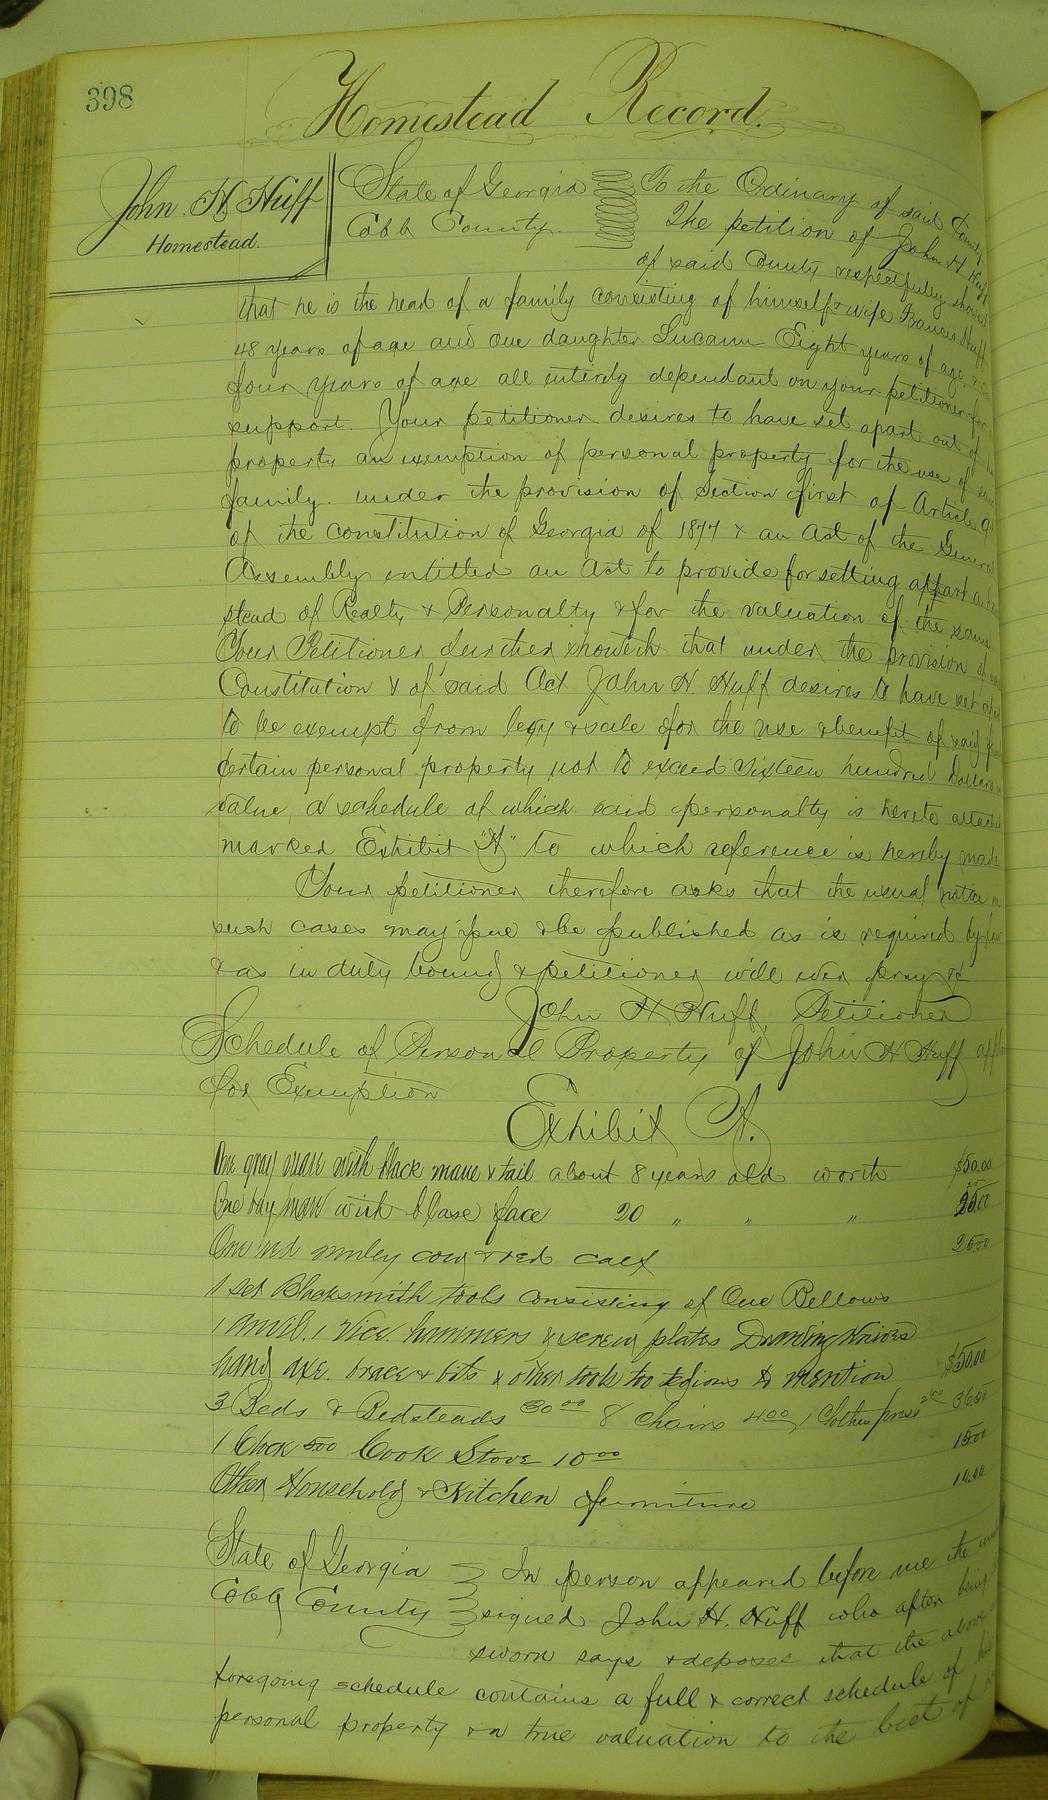 398
Homestead Record.
John H Huff
Homestead.
State of Georgia
Cobb County.
To the Ordinary of said County
The petition of John H Huff
of said County respectfully shows
that he is the head of a family consisting of himself & wife Frances Huff
48 years of age and one daughter Lucann Eight years of age
four years of age all entirely dependant on your petitioner for
support. Your petitioner desires to have set apart out of
property an exemption of personal property for the use of said
family. under the provision of Section first of Article 9
of the constitution of Georgia of 1877 & an Act of the General
Assembly entitled an Act to provide for setting appart a
stead of Realty & Personalty & for the valuation of the same
Your Petitioner further showeth that under the provision of
Constitution & of said Act John H. Huff desires to have set apart
to be exempt from levy & sale for the use & benefit of said
certain personal property not to exceed sixteen hundred Dollars
value, a schedule of which said personalty is hereto attached
marked Exhibit "A" to which reference is hereby made
Your petitioner therefore asks that the usual notice in
such cases may be published as is required by law
& as in duty bound petitioner will ever pray &c
John H Huff, Petitioner
Schedule of Personal Property of John H Huff
for Exemption
Exhibit A.
One gray mare with black mane & tail about 8 years old worth $50.00
One bay mare with blase face 20 " " "
One red muley cow & red calf 25.00
1 set Blacksmith tools consisting of One Bellows
1 anvil. 1 Vice hammers & screw plates Drawing Knives
hand axe. brace & bits & other tools too tedious to mention $50.00
3 Beds & Bedsteads 30 00 8 Chairs 4 00 1 Clothes press 2 00 36.00
1 Clock 5.00 Cook Stove 10 00 15.00
Other Household & Kitchen furniture 10.00
State of Georgia
Cobb County
In person appeared before me the
signed John H. Huff who after being
sworn says & deposes that the above
foregoing schedule contains a full & correct schedule of his
personal property & a true valuation to the best of